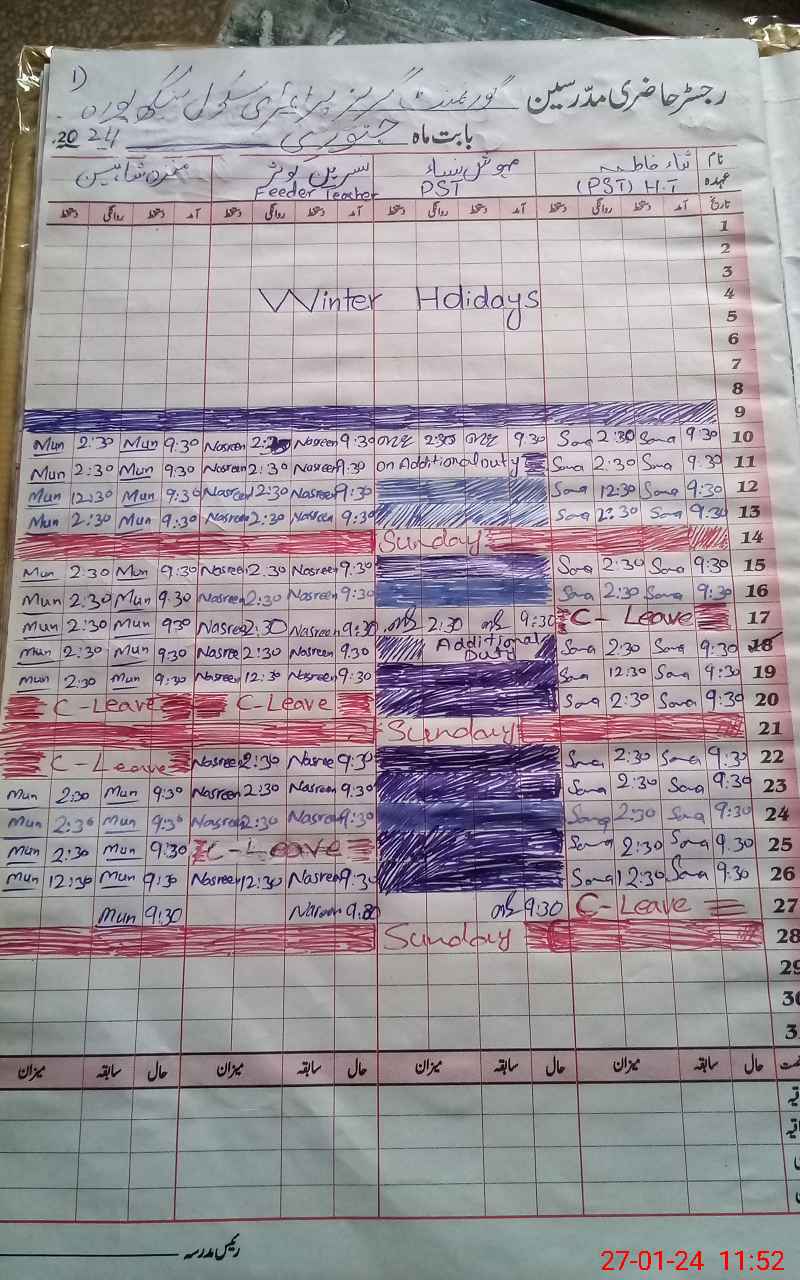 1)
رجسٹر حاضری مدرسین گورنمنٹ گرلز پرائمری سکول سیکھ پورہ
بابت ماہ جنوری 2024
نام ثناء فاطمہ مہوش نساء نسرین کوثر منزہ شاہین
عہدہ (PST) H.T PST Feeder Teacher
تاریخ آمد دستخط روانگی دستخط آمد دستخط روانگی دستخط آمد دستخط روانگی دستخط آمد دستخط روانگی دستخط
1
2
3
Winter Holidays 4
5
6
7
8
9
Mun 2:30 Mun 9:30 Nasreen Nasreen 9:30 2:30 9:30 Sana 2:30 Sana 9:30 10
Mun 2:30 Mun 9:30 Nasreen 2:30 Nasreen 9:30 on Additional duty Sana 2:30 Sana 9:30 11
Mun 12:30 Mun 9:30 Nasreen 12:30 Nasreen 9:30 Sana 12:30 Sana 9:30 12
Mun 2:30 Mun 9:30 Nasreen 2:30 Nasreen 9:30 Sana 2:30 Sana 9:30 13
Sunday 14
Mun 2:30 Mun 9:30 Nasreen 2:30 Nasreen 9:30 Sana 2:30 Sana 9:30 15
Mun 2:30 Mun 9:30 Nasreen 2:30 Nasreen 9:30 Sana 2:30 Sana 9:30 16
Mun 2:30 Mun 9:30 Nasreen 2:30 Nasreen 9:30 2:30 9:30 C- Leave 17
Mun 2:30 Mun 9:30 Nasreen 2:30 Nasreen 9:30 Additional Duty Sana 2:30 Sana 9:30 18
Mun 2:30 Mun 9:30 Nasreen 12:30 Nasreen 9:30 Sana 12:30 Sana 9:30 19
C-Leave C-Leave Sana 2:30 Sana 9:30 20
Sunday 21
C-Leave Nasreen 2:30 Nasreen 9:30 Sana 2:30 Sana 9:30 22
Mun 2:30 Mun 9:30 Nasreen 2:30 Nasreen 9:30 Sana 2:30 Sana 9:30 23
Mun 2:30 Mun 9:30 Nasreen 2:30 Nasreen 9:30 Sana 2:30 Sana 9:30 24
Mun 2:30 Mun 9:30 C-Leave Sana 2:30 Sana 9:30 25
Mun 12:30 Mun 9:30 Nasreen 12:30 Nasreen 9:30 Sana 12:30 Sana 9:30 26
Mun 9:30 Nasreen 9:30 9:30 C-Leave 27
Sunday 28
29
30
3
حال سابقہ میزان حال سابقہ میزان حال سابقہ میزان حال سابقہ میزان
رئیس مدرسہ
27-01-24 11:52